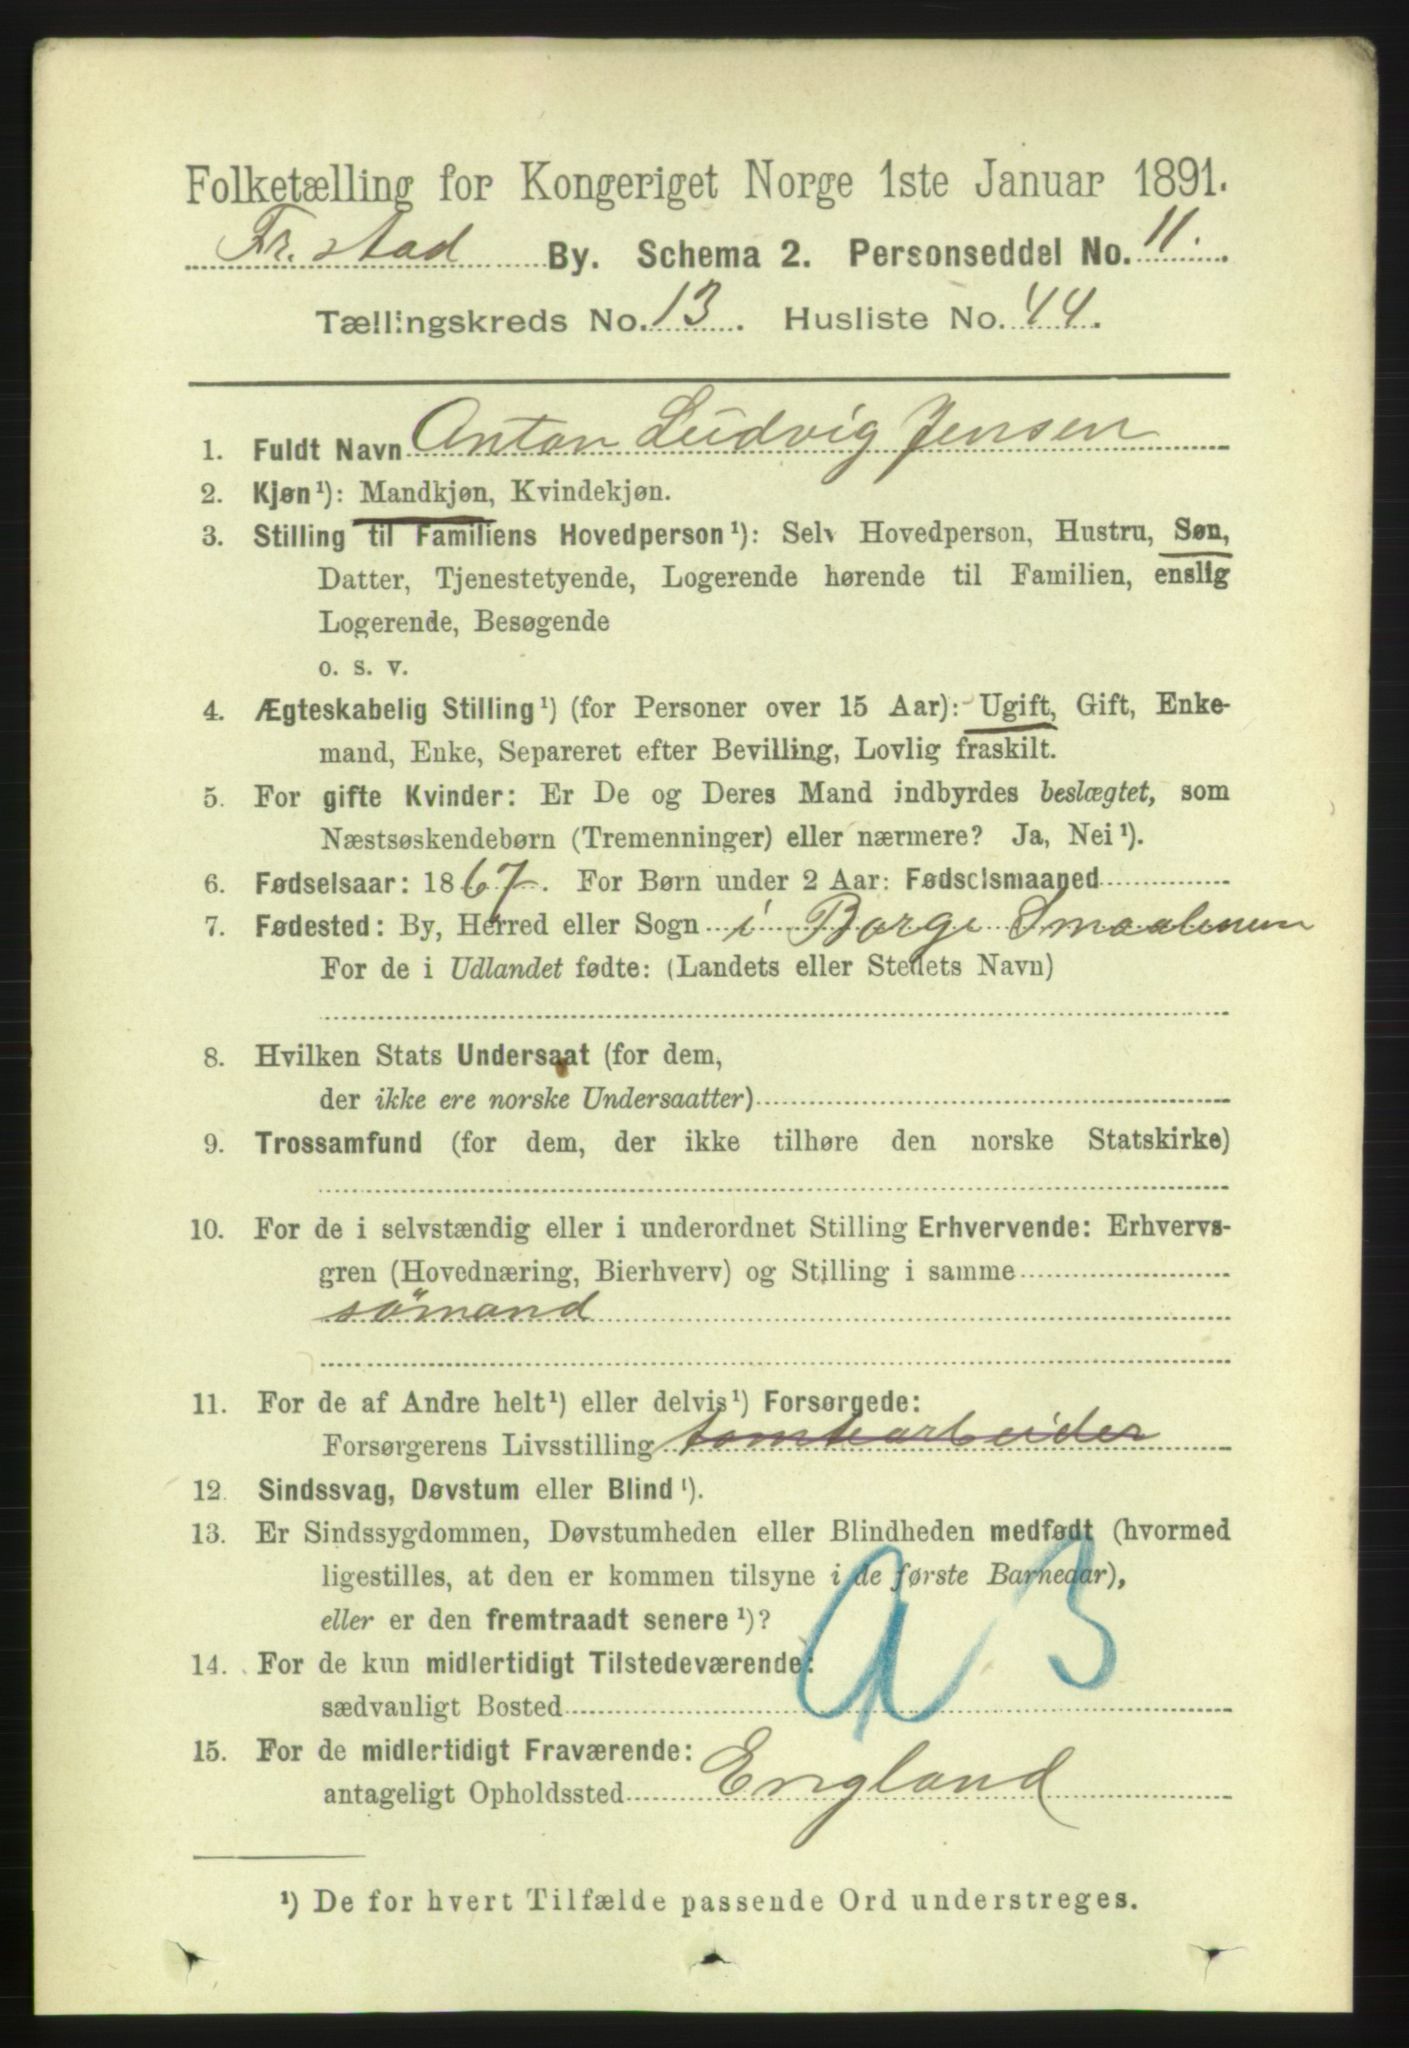 Folketælling for Kongeriget Norge 1ste Januar 1891.
Fr.stad By. Schema 2. Personseddel No. 11.
Tællingskreds No. 13. Husliste No. 44.
1. Fuldt Navn Anton Ludvig Jensen
2. Kjøn¹): Mandkjøn, Kvindekjøn.
3. Stilling til Familiens Hovedperson¹): Selv Hovedperson, Hustru, Søn,
Datter, Tjenestetyende, Logerende hørende til Familien, enslig
Logerende, Besøgende
o. s. v.
4. Ægteskabelig Stilling¹) (for Personer over 15 Aar): Ugift, Gift, Enke-
mand, Enke, Separeret efter Bevilling, Lovlig fraskilt.
5. For gifte Kvinder: Er De og Deres Mand indbyrdes beslægtet, som
Næstsøskendebørn (Tremenninger) eller nærmere? Ja, Nei¹).
6. Fødselsaar: 1867. For Børn under 2 Aar: Fødselsmaaned
7. Fødested: By, Herred eller Sogn i Borge Smaalenene
For de i Udlandet fødte: (Landets eller Stedets Navn)
8. Hvilken Stats Undersaat (for dem,
der ikke ere norske Undersaatter)
9. Trossamfund (for dem, der ikke tilhøre den norske Statskirke)
10. For de i selvstændig eller i underordnet Stilling Erhvervende: Erhvervs-
gren (Hovednæring, Bierhverv) og Stilling i samme
sömand
11. For de af Andre helt¹) eller delvis¹) Forsørgede:
Forsørgerens Livsstilling tomtearbeider
12. Sindssvag, Døvstum eller Blind¹).
13. Er Sindssygdommen, Døvstumheden eller Blindheden medfødt (hvormed
ligestilles, at den er kommen tilsyne i de første Barneaar),
eller er den fremtraadt senere¹)?
14. For de kun midlertidigt Tilstedeværende:
sædvanligt Bosted
15. For de midlertidigt Fraværende:
antageligt Opholdssted England
¹) De for hvert Tilfælde passende Ord understreges.